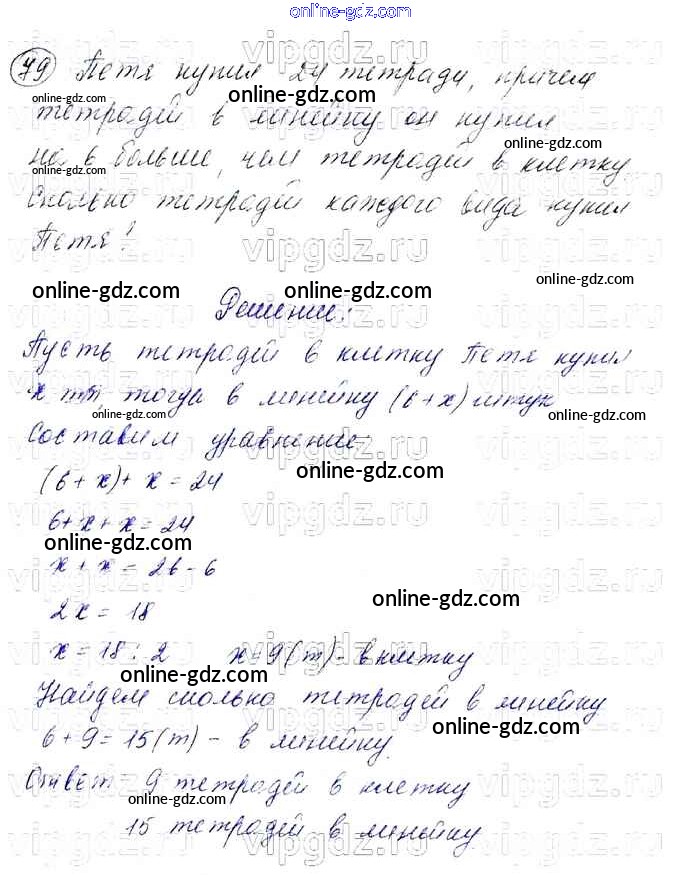 online-gdz.com
79 Петя купил 24 тетради, причем
тетрадей в линейку он купил
на 6 больше, чем тетрадей в клетку
Сколько тетрадей каждого вида купил
Петя?
Решение:
Пусть тетрадей в клетку Петя купил
x шт тогда в линейку (6+x) штук
Составим уравнение:
(6+x)+x=24
6+x+x=24
x+x=26-6
2x=18
x=18:2 x=9(т)-в клетку
Найдем сколько тетрадей в линейку
6+9=15(т)-в линейку.
Ответ: 9 тетрадей в клетку
15 тетрадей в линейку